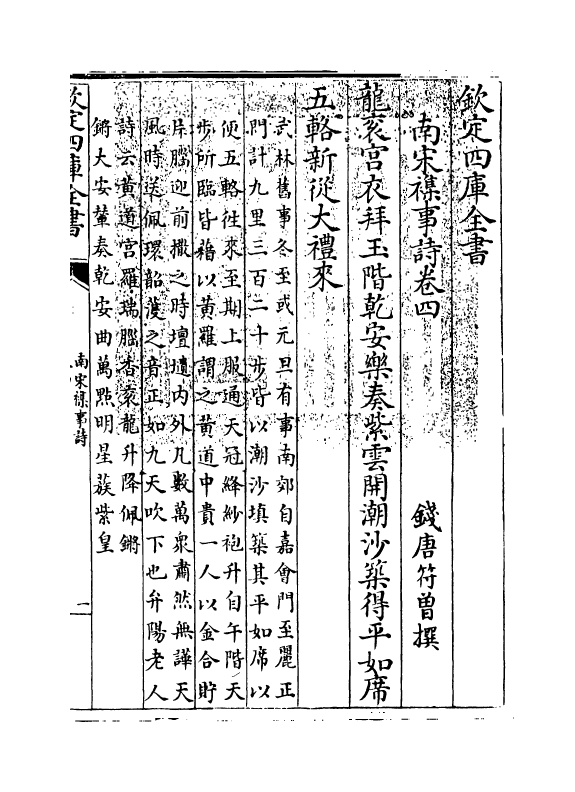 欽定四庫全書
南宋襍事詩卷四
錢唐符曾撰
龍衮宫衣拜玉階乾安樂奏紫雲開潮沙築得平如席
五輅新從大禮來
武林舊事冬至或元旦有事南郊自嘉會門至麗正
門計九里三百二十步皆以潮沙填築其平如席以
便五輅往來至期上服通天冠絳紗袍升自午階天
步所臨皆藉以黄羅謂之黄道中貴一人以金合貯
片腦迎前撒之時壇壝内外凡數萬衆肅然無譁天
風時送佩環韶濩之音正如九天吹下也弁陽老人
詩云黄道宫羅瑞腦香衮龍升降佩鏘
鏘大安輦奏乾安曲萬點明星蔟紫皇
欽定四庫全書
南宋襍事詩
一